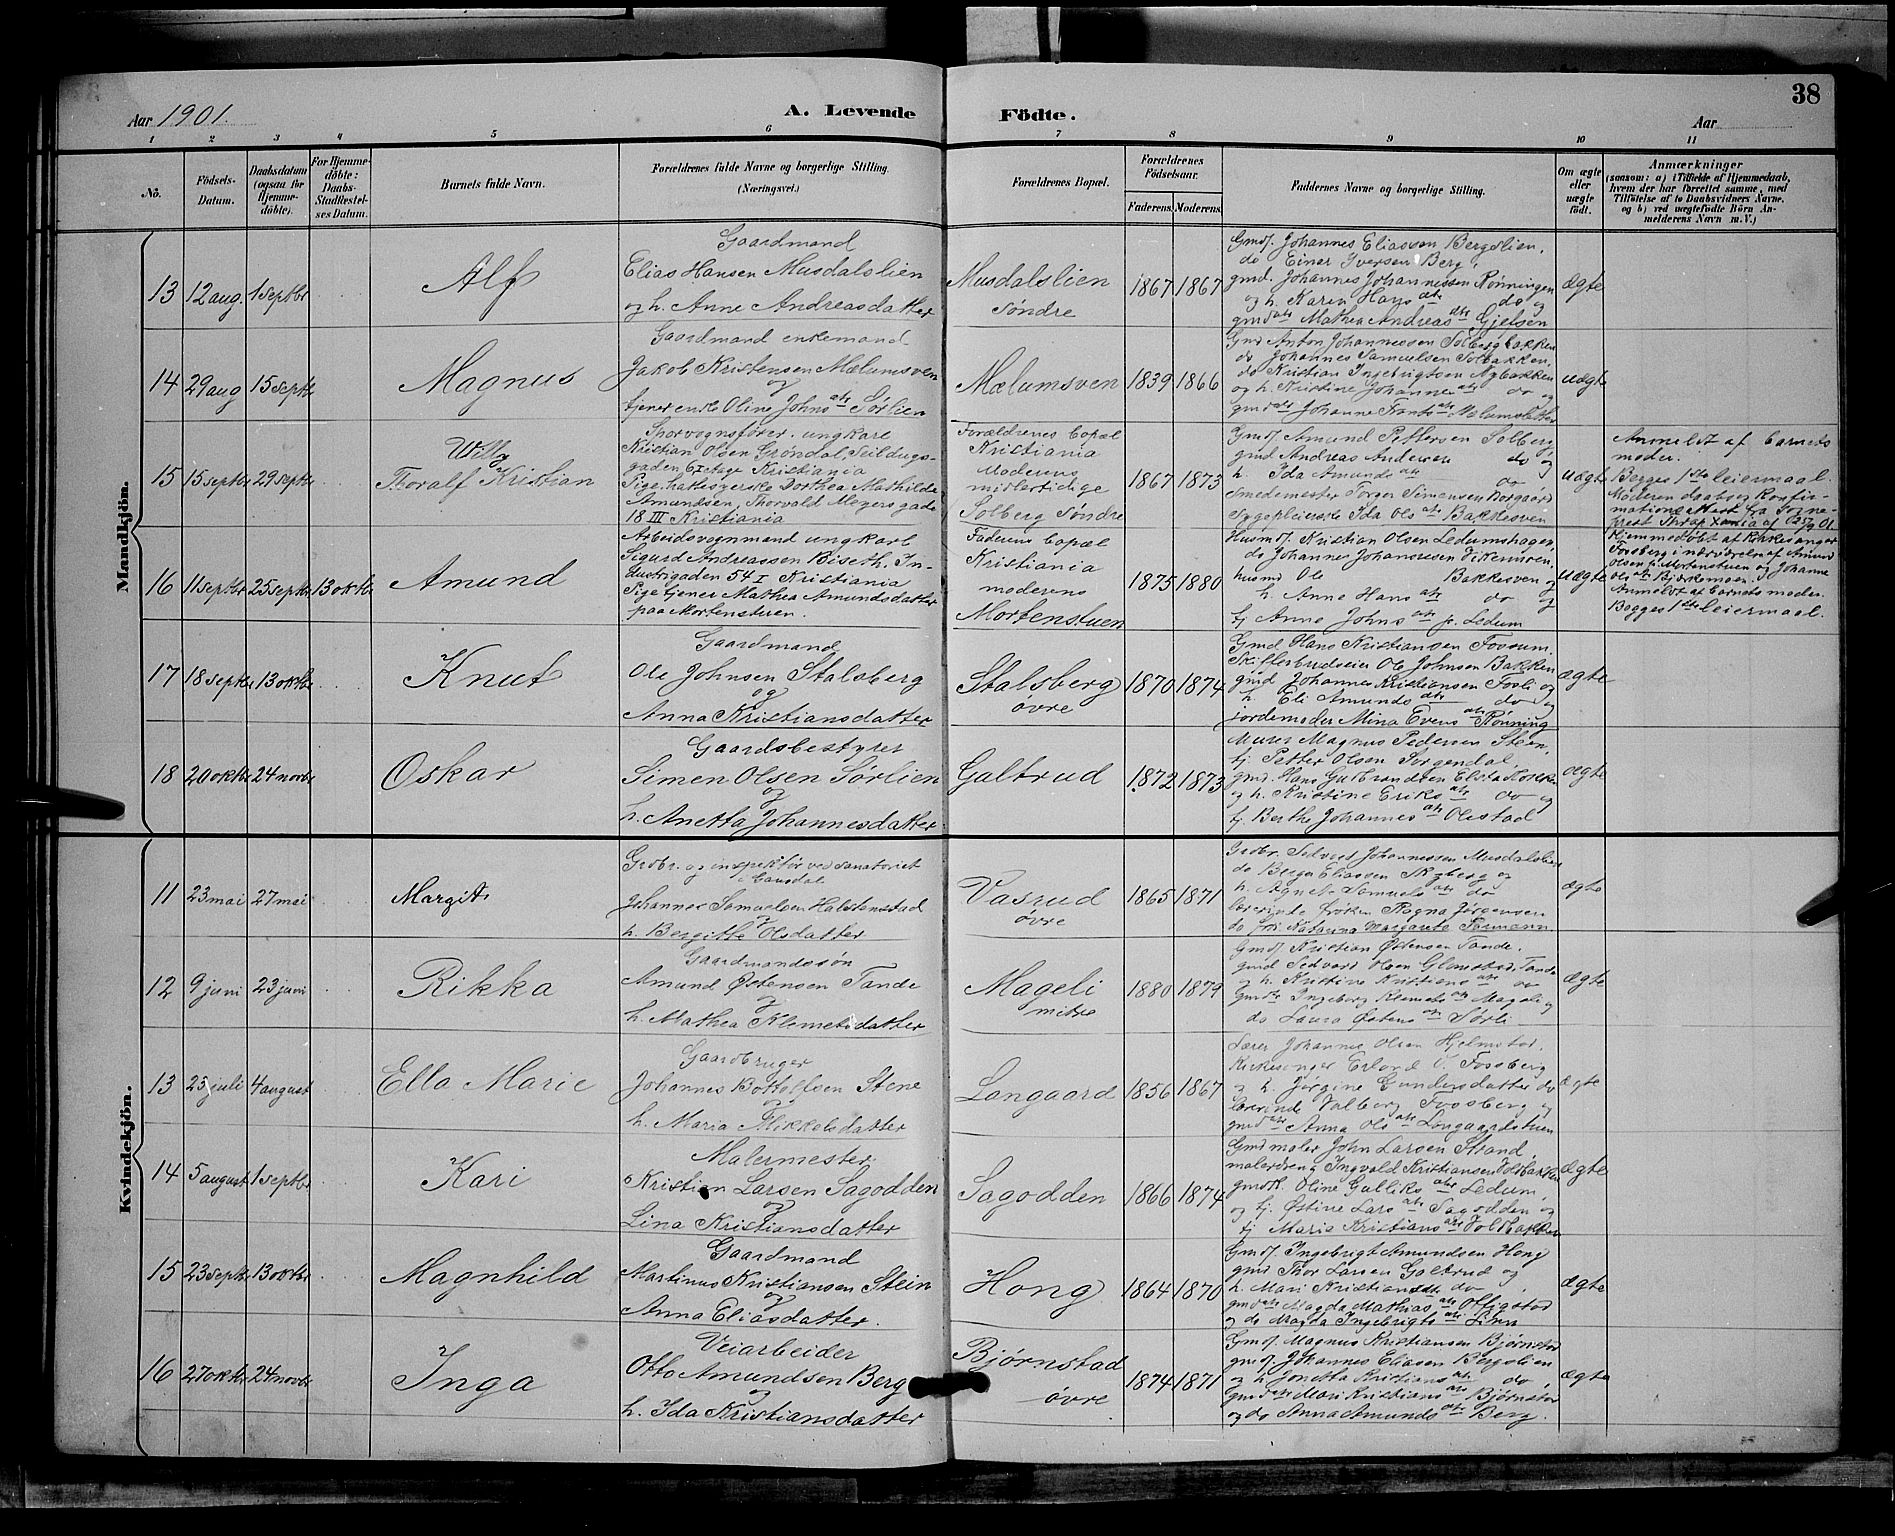 38
Aar 1901.
A. Levende
Födte.
Aar
1 2 3 4 5 6 7 8 9 10 11
No.
Födsels-Datum.
Daabsdatum (ogsaa for Hjemme-döbte).
For Hjemme-döbte: Daabs-Stadfæstel-ses Datum.
Barnets fulde Navn.
Forældrenes fulde Navne og borgerlige Stilling. (Næringsvei.)
Forældrenes Bopæl.
Forældrenes Födselsaar.
Faderens. Moderens.
Faddernes Navne og borgerlige Stilling.
Om ægte eller uægte födt.
Anmærkninger
(saasom: a) i Tilfælde af Hjemmedaab,
hvem der har forrettet samme, med
Tilföielse af to Daabsvidners Navne.
og b) ved uægtefödte Börn An-
melderens Navn m.V.)
Mandkjön.
13 12 aug 1 septbr
Alf
Gaardmand
Elias Hansen Musdalslien
og h. Anne Andreasdatter
Musdalslien
søndre
1867 1867
Gmdf. Johannes Eliassen Bergslien,
do Einer Iversen Berg,
gmd. Johannes Johannessen Rønningen
og h. Karen Hans dtr do og
gmd dtr Mathea Andreas dtr Gjelsen
ægte
14 29 aug 15 septbr
Magnus
Gaardmand enkemand
Jakob Kristensen Mælumsven
og
tjener enke Oline Johns dtr Sørlien
Mælumsven
1839 1866
Gmd Anton Johannessen Solbergbakken
do Johannes Samuelsen Solbakken,
do Kristian Ingebrigtsen Nybakken
og h. Kristine Johannes dtr do og
uægte
15 15 septbr 29 septbr
Willy
Thoralf Kristian
Sporvognsfører, ungkarl
Kristian Olsen Grøndal, Seildugs-
gaden 6 I Aage Kristiania
Pige, hattesyerske Dorthea Mathilde
Amundsen, Thorvald Meyers gade
18 III Kristiania
Forældrenes bopæl
Kristiania
Moderens
midlertidige
Solberg søndre
1867 1873
Gmdf. Amund Pettersen Solberg,
gmd Andreas Andersen do og
h. Ida Amunds dtr do
Smedemester Torger Simensen Borgaard
Sygepleierske Ida Ols dtr Bakkesven
uægte
Anmeldt af barnets
moder.
Begges 1ste leiermaal.
Moderen daabs og konfir-
mations attest fra Sogne-
16 11 septbr 25 septbr 13 oktbr
Amund
Arbeidsvognmand ungkarl
Sigurd Andreassen Biseth, In-
dustrigaden 54 I Kristiania
Pige tjener Mathea Amundsdatter
paa Mortenstuen.
Faderens bopæl
Kristiania
moderens
Mortenstuen
1875 1880
Husmf. Kristian Olsen Ledumshagen,
do Johannes Johannessen Vikemoen,
husmd Ole Bakkesven og
h. Anne Hans dtr do og
tj Anne Johns dtr p. Ledum
uægte
Hjemmedøbt af Kirkesanger
Fossberg i nærværelse af Amund
Olsen p. Mortenstuen og Johanne
Ols dtr Bjerkemoen.
Anmeldt af barnets moder.
Begges 1ste leiermaal.
17 18 septbr 13 oktbr
Knut
Gaardmand
Ole Johnsen Stalsberg
og
Anna Kristiansdatter
Stalsberg
øvre
1870 1874
Gmd Hans Kristiansen Fossum.
Skiferbrudseier Ole Johnsen Bakken
gmd Johannes Kristiansen Fosli og
h. Eli Amunds dtr do og
jordemoder Mina Evens dtr Rønning
ægte
18 20 oktbr 24 novbr
Oskar
Gaardsbestyrer
Simen Olsen Sørlien
og
h. Anetta Johannesdatter
Galtrud
1872 1873
Murer Magnus Pedersen Steen,
tj Petter Olsen Sorgendal,
og h. Kristine Eriks dtr do og
tj. Berthe Johannes dtr Olestad
ægte
Kvindekjön.
11 23 mai 27 mai
Margit
Grdbr. og inspektør ved sanatoriet
i Gausdal
Johannes Samuelsen Halstenstad
og
h. Bergitte Olsdatter
Vasrud
øvre
1865 1871
Grdbr. Sedvard Johannessen Musdalslien
do Berger Eliassen Skyberg og
h. Agnete Samuels dtr do
lærerinde frøken Ragna Jørgensen
do frk Katarina Margarete Formann
ægte
12 9 juni 23 juni
Rikka
Gaardmandssøn
Amund Østensen Tande
og
h. Mathea Klemetsdatter
Mageli
mitre
1880 1879
Gmdf Kristian Østensen Tande.
gmd Sedvard Olsen Glomstad, Tande
og h. Kristine Kristians dtr do
gmd dtr Ingeborg Klemets dtr Mageli og
do Laura Østens dtr Sørli
ægte
13 25 juli 4 august
Ella Marie
Gaardbruger
Johannes Bottolfsen Stene
og
h. Maria Mikkelsdatter
Langaard
1856 1867
Lærer Johannes Olsen Hjelmstad,
Kirkesanger Erland O. Fossberg
og h. Jørgine Gundersdatter do
lærerinde Valborg Fossberg og
gmd dtr Anna Ols dtr Langaardstuen
ægte
14 5 august 1 septbr
Kari
Malermester
Kristian Larsen Sagodden
og
Lina Kristiansdatter
Sagodden
1866 1874
Gmd maler John Larsen Strand,
malerdreng Ingvald Kristiansen Voldbakken
gmdk. Oline Gulliks dtr Ledum,
og tj. Østine Lars dtr Sagodden og
tj Marie Kristians dtr Voldbakken
ægte
15 23 septbr 13 oktbr
Magnhild
Gaardmand
Martinus Kristiansen Stein
og
Anna Eliasdatter.
Hong
1864 1870
Gmdf. Ingebrigt Amundsen Hong
gmd Thor Larsen Galtrud og
h. Mari Kristians dtr do
gmd dtr Magda Mathias dtr Offigstad
og do Magda Ingebrigts dtr Lien
ægte
16 27 oktbr 24 novbr
Inga
Veiarbeider
Otto Amundsen Berg
og
h. Ida Kristiansdatter
Bjørnstad
øvre
1874 1871
Gmdf. Magnus Kristiansen Bjørnstad
gmdf. Johannes Eliasen Bergslien
og h. Jonetta Kristians dtr do,
gmd dtr Mari Kristians dtr Bjørnstad
og do Anna Amunds dtr Berg.
ægte